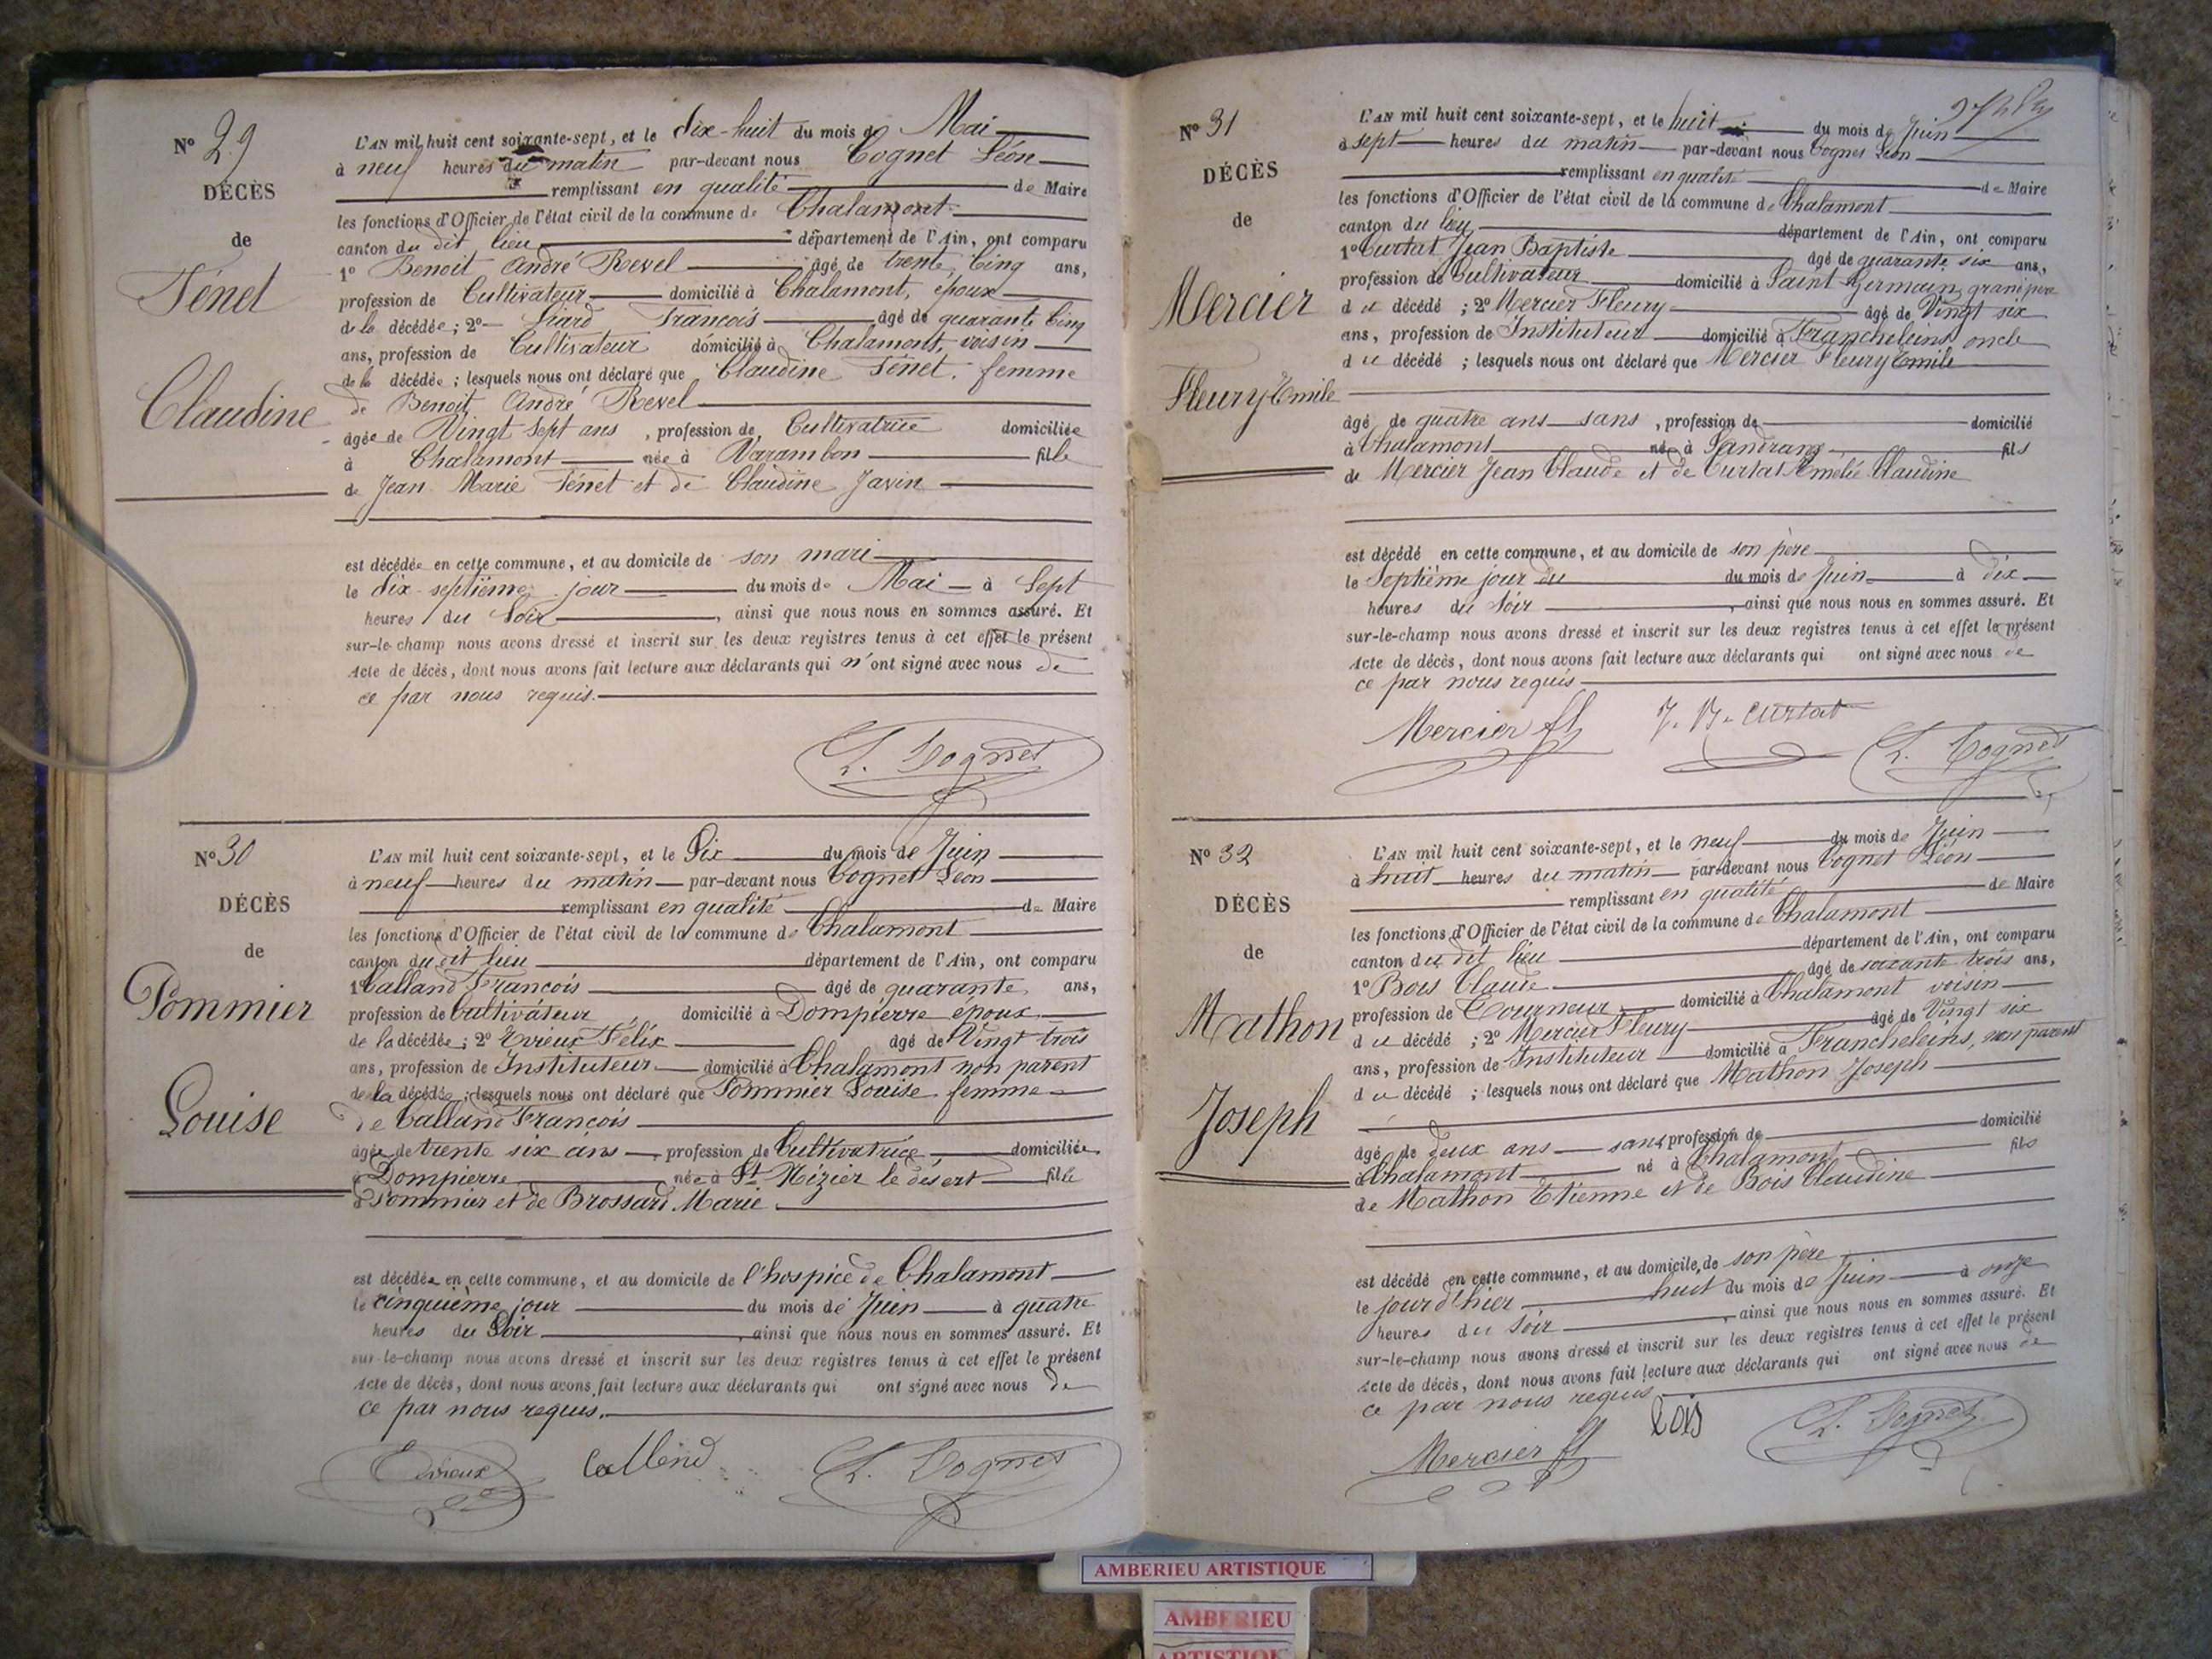 Nº 29
DÉCÈS
de
Fénet
Claudine
L'AN mil huit cent soixante-sept, et le dix-huit du mois de Mai
à neuf heures du matin par-devant nous Cognet Léon
remplissant en qualité de Maire
les fonctions d'Officier de l'état civil de la commune de Chalamont
canton du dit lieu département de l'Ain, ont comparu
1º Benoit André Revel âgé de trente cinq ans,
profession de Cultivateur domicilié à Chalamont, époux
de la décédée ; 2º François âgé de quarante cinq
ans, profession de Cultivateur domicilié à Chalamont, voisin
de la décédée ; lesquels nous ont déclaré que Claudine Fénet, femme
de Benoit André Revel
âgée de Vingt sept ans, profession de Cultivatrice domiciliée
à Chalamont née à Varambon fille
de Jean Marie Fénet et de Claudine Javin
est décédée en cette commune, et au domicile de son mari
le dix-septième jour du mois de Mai à Sept
heures du Soir, ainsi que nous nous en sommes assuré. Et
sur-le-champ nous avons dressé et inscrit sur les deux registres tenus à cet effet le présent
Acte de décès, dont nous avons fait lecture aux déclarants qui n'ont signé avec nous de
ce par nous requis.
L. Cognet
Nº 30
DÉCÈS
de
Pommier
Louise
L'AN mil huit cent soixante-sept, et le Six du mois de Juin
à neuf heures du matin par-devant nous Cognet Léon
remplissant en qualité de Maire
les fonctions d'Officier de l'état civil de la commune de Chalamont
canton du dit lieu département de l'Ain, ont comparu
1º Calland François âgé de quarante ans,
profession de Cultivateur domicilié à Dompierre époux
de la décédée ; 2º Evrieux Félix âgé de Vingt trois
ans, profession de Instituteur domicilié à Chalamont non parent
de la décédée ; lesquels nous ont déclaré que Pommier Louise femme
de Calland François
âgée de trente six ans, profession de Cultivatrice, domiciliée
à Dompierre née à St Nizier le désert fille
d Pommier et de Brossard Marie
est décédée en cette commune, et au domicile de l'hospice de Chalamont
le cinquième jour du mois de Juin à quatre
heures du Soir, ainsi que nous nous en sommes assuré. Et
sur-le-champ nous avons dressé et inscrit sur les deux registres tenus à cet effet le présent
Acte de décès, dont nous avons fait lecture aux déclarants qui ont signé avec nous de
ce par nous requis.
Evrieux Calland L. Cognet
Nº 31
DÉCÈS
de
Mercier
Fleury Emile
L'AN mil huit cent soixante-sept, et le huit du mois de Juin
à sept heures du matin par-devant nous Cognet Léon
remplissant en qualité de Maire
les fonctions d'Officier de l'état civil de la commune de Chalamont
canton du lieu département de l'Ain, ont comparu
1º Curtat Jean Baptiste âgé de quarante six ans,
profession de Cultivateur domicilié à Saint Germain, grand père
du décédé ; 2º Mercier Fleury âgé de Vingt six
ans, profession de Instituteur domicilié à Francheleins, oncle
du décédé ; lesquels nous ont déclaré que Mercier Fleury Emile
âgé de quatre ans sans, profession de domicilié
à Chalamont né à Sandrans fils
de Mercier Jean Claude et de Curtat Amélie Claudine
est décédé en cette commune, et au domicile de son père
le Septième jour du du mois de Juin à dix
heures du Soir, ainsi que nous nous en sommes assuré. Et
sur-le-champ nous avons dressé et inscrit sur les deux registres tenus à cet effet le présent
Acte de décès, dont nous avons fait lecture aux déclarants qui ont signé avec nous de
ce par nous requis
Mercier fl J. B. Curtat
L. Cognet
Nº 32
DÉCÈS
de
Mathon
Joseph
L'AN mil huit cent soixante-sept, et le neuf du mois de Juin
à huit heures du matin par-devant nous Cognet Léon
remplissant en qualité de Maire
les fonctions d'Officier de l'état civil de la commune de Chalamont
canton du dit lieu département de l'Ain, ont comparu
1º Bois Claude âgé de soixante trois ans,
profession de Tourneur domicilié à Chalamont voisin
du décédé ; 2º Mercier Fleury âgé de Vingt six
ans, profession de Instituteur domicilié à Francheleins, non parent
du décédé ; lesquels nous ont déclaré que Mathon Joseph
âgé de deux ans sans, profession de domicilié
à Chalamont né à Chalamont fils
de Mathon Etienne et de Bois Claudine
est décédé en cette commune, et au domicile de son père
le jour d'hier huit du mois de Juin à onze
heures du Soir, ainsi que nous nous en sommes assuré. Et
sur-le-champ nous avons dressé et inscrit sur les deux registres tenus à cet effet le présent
Acte de décès, dont nous avons fait lecture aux déclarants qui ont signé avec nous de
ce par nous requis
Mercier fl bois L. Cognet
AMBERIEU ARTISTIQUE
AMBERIEU
ARTISTIQUE